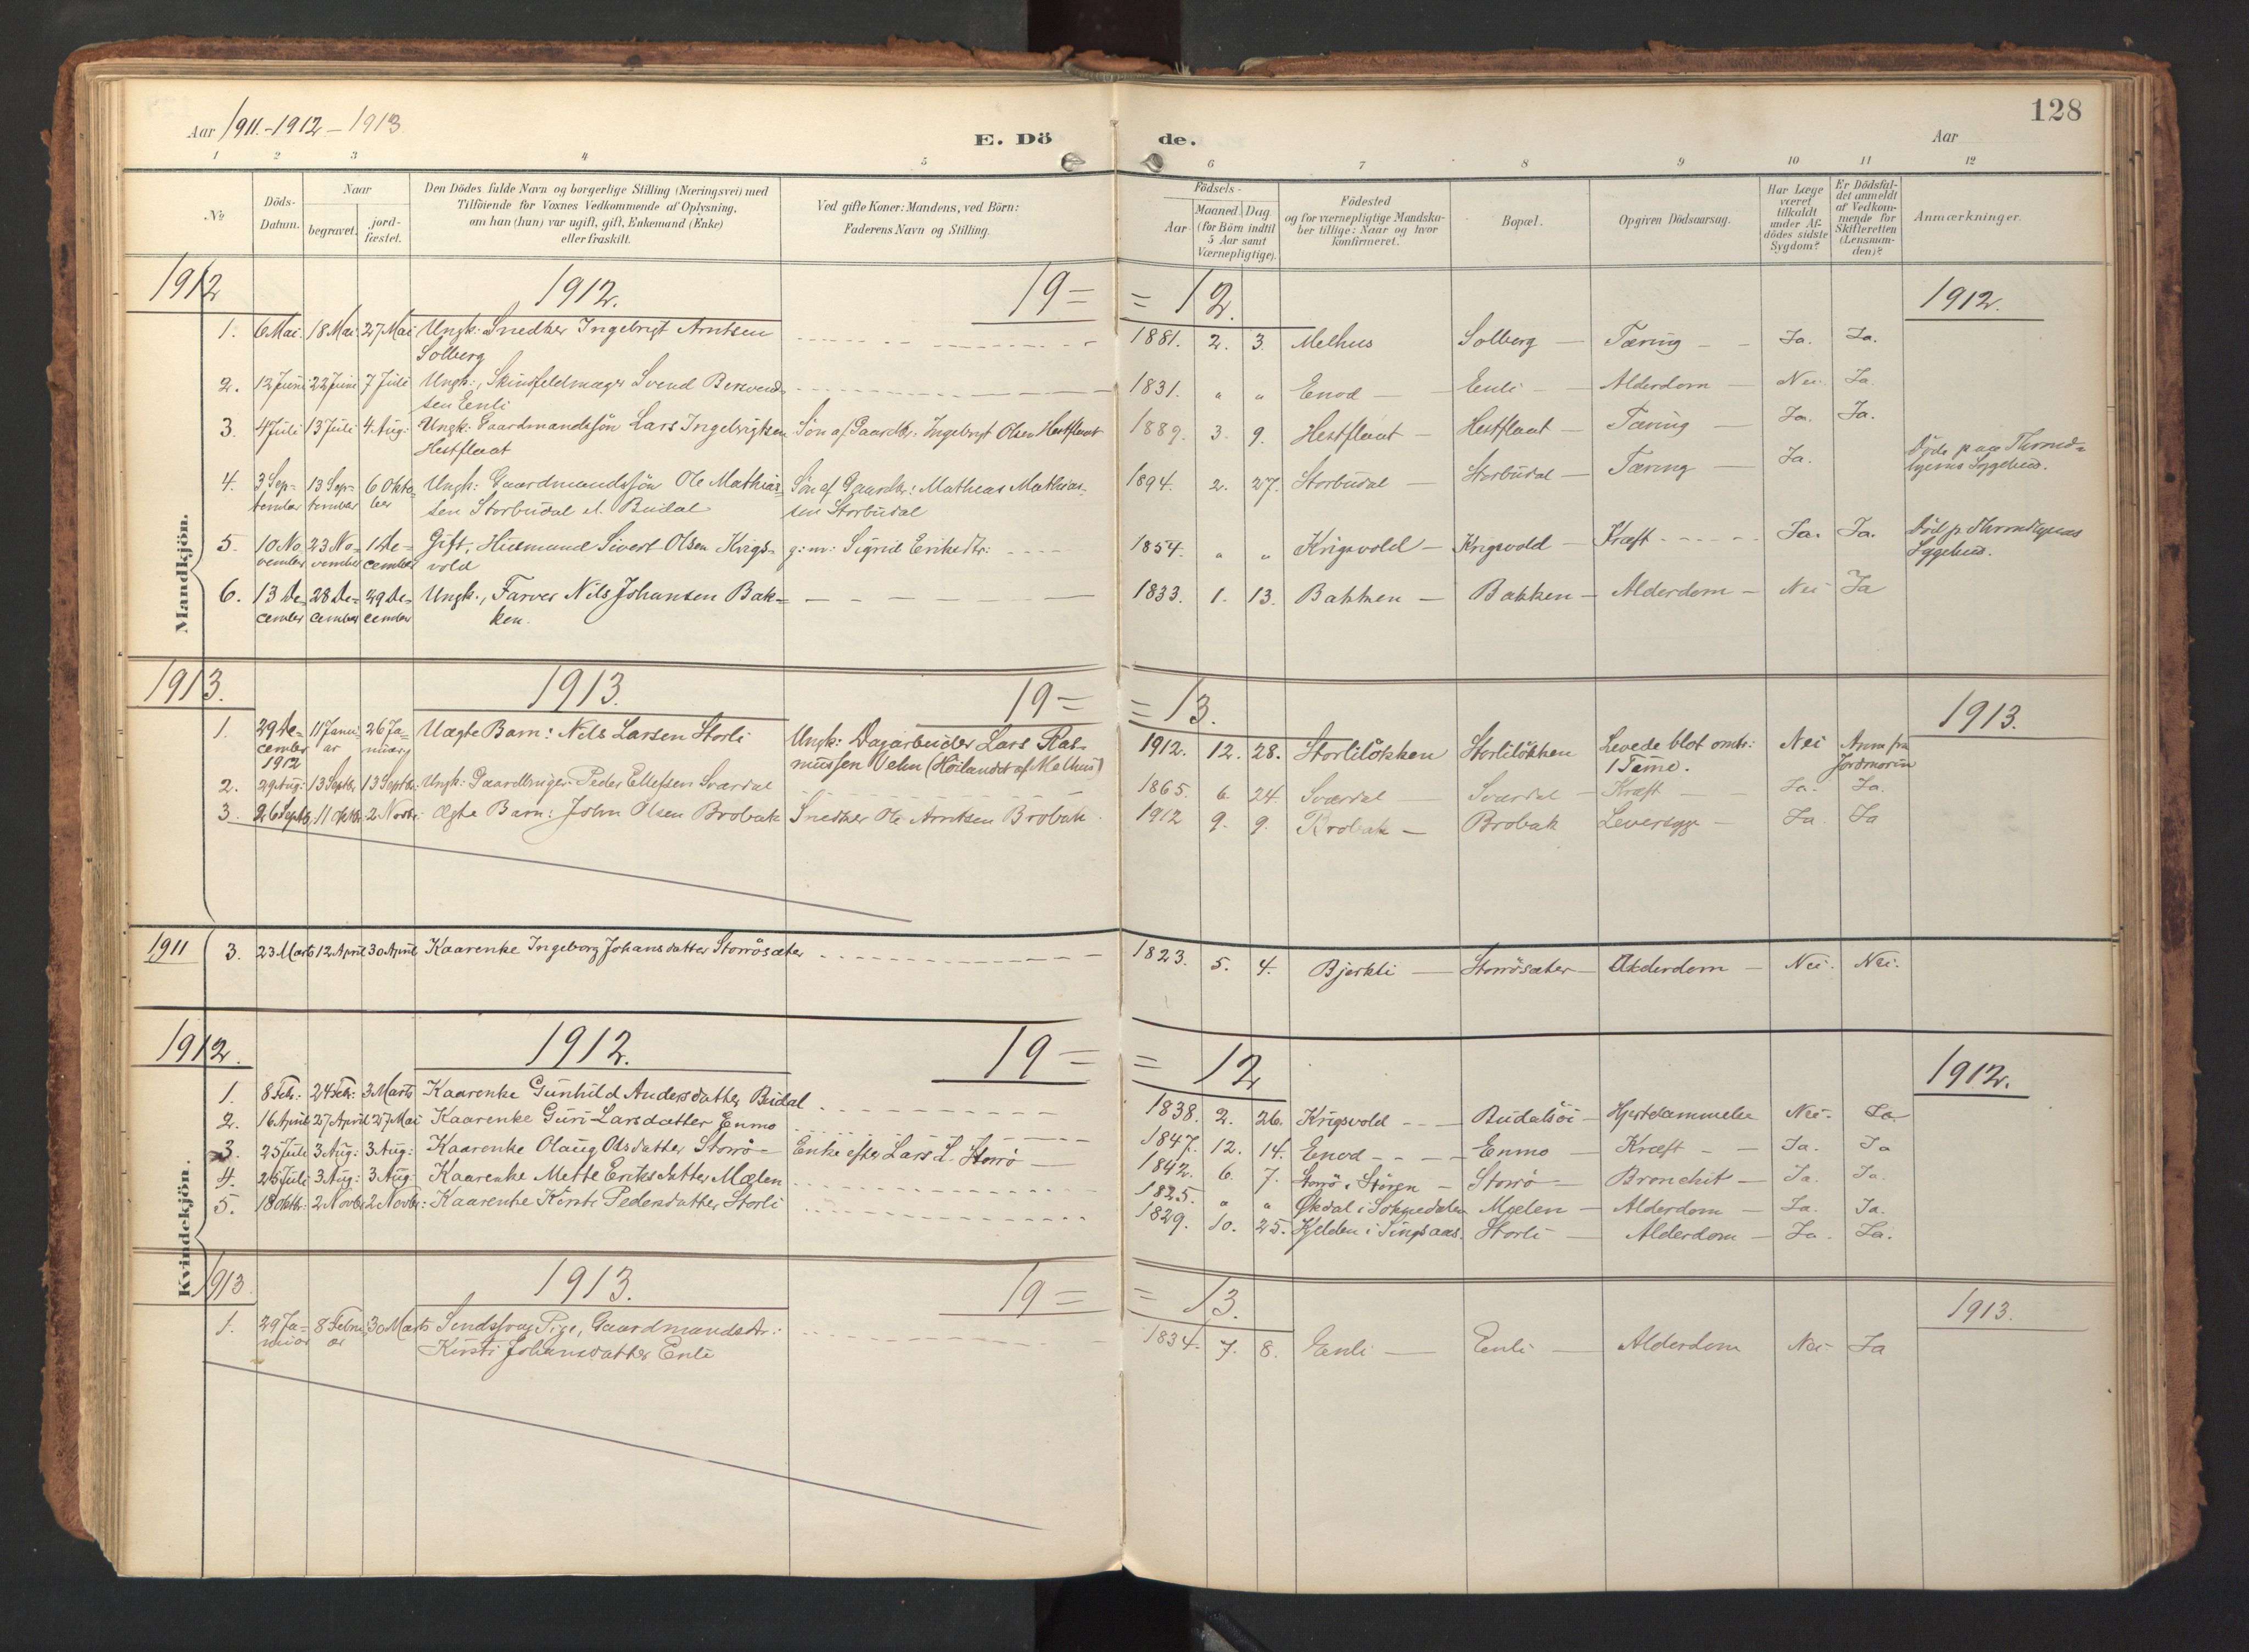 Aar 1911.-1912-1913.
E. Dö
de.
Aar
128
1 2 3 4 5 6 7 8 9 10 11 12
No
Döds-Datum.
Naar
begravet.
jord-fæstet.
Den Dödes fulde Navn og borgerlige Stilling (Næringsvei) med
Tilföiende for Voxnes Vedkommende af Oplysning,
om han (hun) var ugift, gift, Enkemand (Enke)
eller fraskilt.
Ved gifte Koner: Mandens, ved Börn:
Faderens Navn og Stilling.
Födsels-
Aar
Maaned. Dag
(for Börn indtil
5 Aar samt
Værnepligtige).
Födested
og for værnepligtige Mandska-
ber tillige: Naar og hvor
konfirmeret.
Bopæl.
Opgiven Dödsaarsag.
Har Læge
været
tilkaldt
under Af-
dödes sidste
Sygdom?
Er Dödsfal-
det anmeldt
af Vedkom-
mende for
Skifteretten
(Lensman-
den)?
Anmærkninger.
Mandkjön.
1912 1912. 19= =12. 1912.
1. 6 Mai. 18 Mai. 27 Mai Ungk: Snedker Ingebrigt Arntsen 1881. 2. 3. Melhus Solberg Tæring Ja. Ja.
Solberg
2. 12 Juni 22 Juni 7 Juli Ungk:, Skindfeldmager Svend Berend- 1831. " " Enod Enli Alderdom Nei. Ja.
sen Enli
3. 4 Juli 13 Juli 4 Aug: Ungk: Gaardmandssön Lars Ingebrigtsen Sön af Gaardbr: Ingebrigt Olsen Hestflaat 1889. 3. 9. Hestflaat Hestflaat Tæring Ja. Ja.
Hestflaat
4. 3 Sep- 13 Sep- 6 Okto- Ungk: Gaardmandssön Ole Mathias- Sön af Gaardbr: Mathias Mathias- 1894. 2. 27. Storbudal Storbudal Tæring Ja. Döde paa Thrond-
tember tember ber sen Storbudal Budal sen Storbudal hjems Sygehus.
5. 10 No 23 No- 1 De- Gift, Husmand Sivert Olsen Krigs- g: m: Sigrid Eriksdtr: 1854. " " Krigsvold Krigsvold Kræft Ja. Ja. Död p. Throndhjems
vember vember cember vold Sygehus.
6. 13 De- 28 De- 29 De- Ungk., Farver Nils Johansen Bak- 1833. 1. 13. Bakken Bakken Alderdom Nei Ja
cember cember cember ken.
1913. 1913. 19= =13. 1913.
1. 29 De- 11 Janu- 26 Ja- Uægte Barn: Nils Larsen Storli Ungk: Dagarbeider Lars Ras- 1912. 12. 28. Storlilökken Storlilökken Levede blot omtr: Nei Anm. fra
cember ar nuar mussen Vehn (Höilandet af Melhus) 1 Time. Jordmorin
1912
2. 29 Aug: 13 Septbr 13 Septbr: Ungk: Gaardbruger Peder Ellefsen Sværdal 1865. 6. 24. Sværdal Sværdal Kræft Ja. Ja.
3. 26 Septbr 11 Oktbr 2 Novbr: Ægte Barn: John Olsen Brobak Snedker Ole Arntsen Brobak 1912 9. 9. Brobak Brobak Leversyge Ja. Ja
1911 3. 23 Marts 12 April 30 April Kaarenke Ingeborg Johansdatter Storrösæter 1823. 5. 4. Bjerkli Storrösæter Alderdom Nei. Nei.
Kvindekjön.
1912. 1912. 19= =12 1912.
1. 8 Feb: 24 Feb: 3 Marts Kaarenke Gunhild Andersdatter Budal 1838. 2. 26. Krigsvold Budalsöi Hjertelammelse Nei. Ja.
2. 16 April 27 April 27 Mai Kaarenke Guri Larsdatter Enmo 1847. 12. 14. Enod Enmo Kræft Ja. Ja
3. 25 Juli 3 Aug: 3 Aug: Kaarenke Olaug Olsdatter Storrö Enke efter Lars L. Storrö 1842. 6. 7. Storrö i Stören Storrö Bronchit Ja. Ja.
4. 26 Juli 3 Aug: 3 Aug: Kaarenke Mette Eriksdatter Mælen 1825. " " Økdal i Soknedalen Mælen Alderdom Ja. Ja.
5. 18 Oktbr: 2 Novbr 2 Novbr: Kaarenke Kirsti Pedersdatter Storli 1829. 10. 25. Kjelden i Singsaas. Storli Alderdom Ja. Ja.
1913 1913. 19= =13. 1913.
1. 29 Ja- 8 Febru 30 Marts Sindssvag Pige, Gaardmandsdtr.: 1834. 7. 8. Enli Enli Alderdom Nei Ja
nuar ar Kirsti Johansdatter Enli